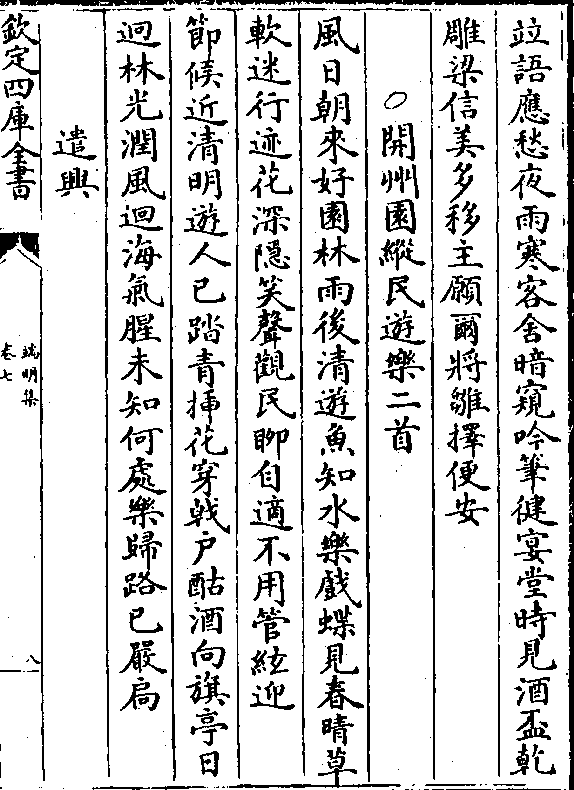 竝語應愁夜雨寒客舍暗窺吟筆健宴堂時見酒盃乾
雕梁信美多移主願爾將雛擇便安
○開州園縱民遊樂二首
風日朝來好園林雨後清遊魚知水樂戲蝶見春晴草
軟迷行迹花深隱笑聲觀民聊自適不用管絃迎
節候近清明遊人已踏青揷花穿戟戶酤酒向旗亭日
迥林光潤風迴海氣腥未知何處樂歸路已嚴扃
遣興
欽定四庫全書
端明集
卷七
八